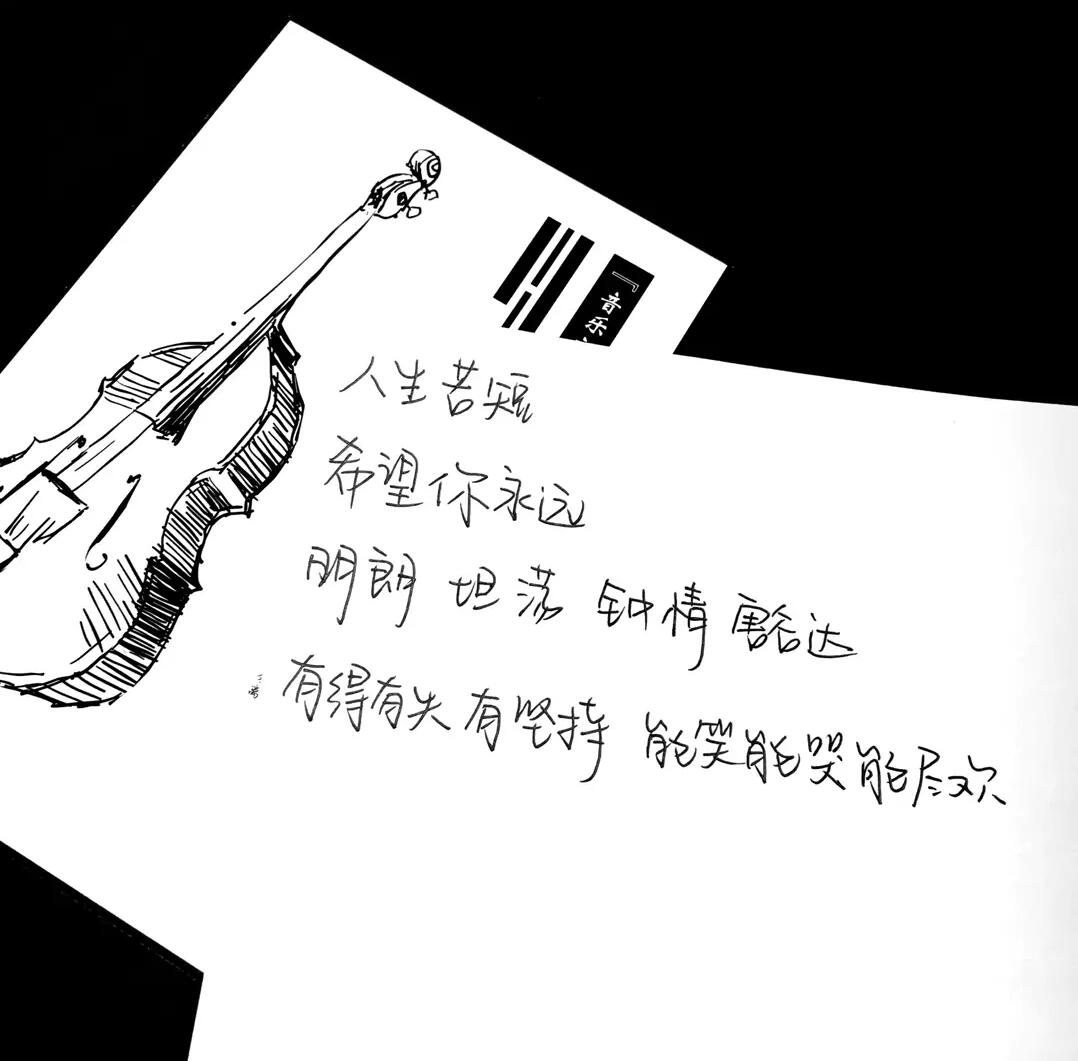 『音乐
人生苦短
希望你永远
明朗 坦荡 钟情 豁达
有得有失有坚持 能笑能哭能尽欢